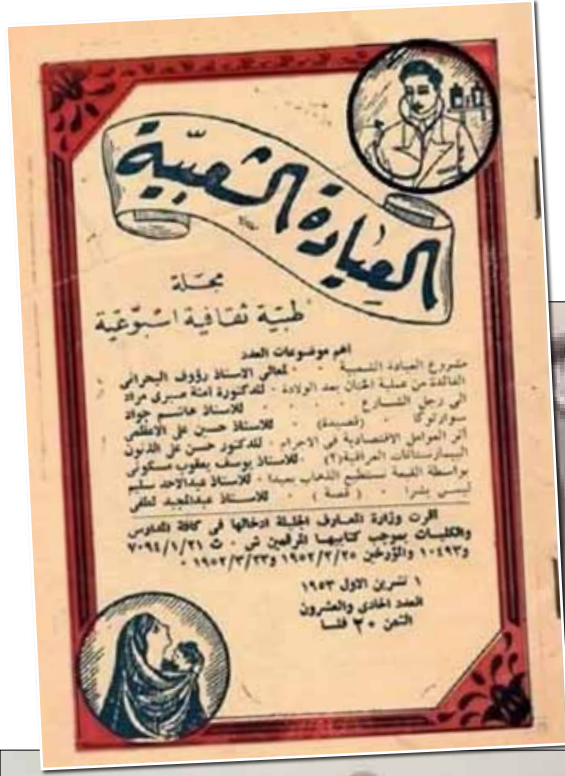 العيادة الشعبيّة
مجلة
طبية ثقافية اسبوعية
اهم موضوعات العدد
مشروع العيادة الشعبية لمعالي الاستاذ رؤوف البحراني
الفائدة من عملية الختان بعد الولادة - للدكتورة آمنة صبري مراد
الى رجل الشارع للاستاذ هاشم جواد
سوارتوكا (قصيدة) للاستاذ حسن علي الاعظمي
أثر العوامل الاقتصادية في الاجرام - للدكتور حسن علي الذنون
البيمارستانات العراقية (٢) للاستاذ يوسف يعقوب مسكوني
بواسطة القيمة نستطيع الذهاب بعيدا - للاستاذ عبدالاحد سليم
ليس بشرا (قصة) للاستاذ عبدالمجيد لطفي
اقرت وزارة المعارف الجليلة ادخالها في كافة المدارس
والكليات بموجب كتابيها المرقمين ش . ث ٧٠٩٤/١/٢١
و١٠٤٩٣ والمؤرخين ١٩٥٢/٢/٢٥ و١٩٥٢/٣/٢٣ .
١ تشرين الاول ١٩٥٣
العدد الحادي والعشرون
الثمن ٢٠ فلسا